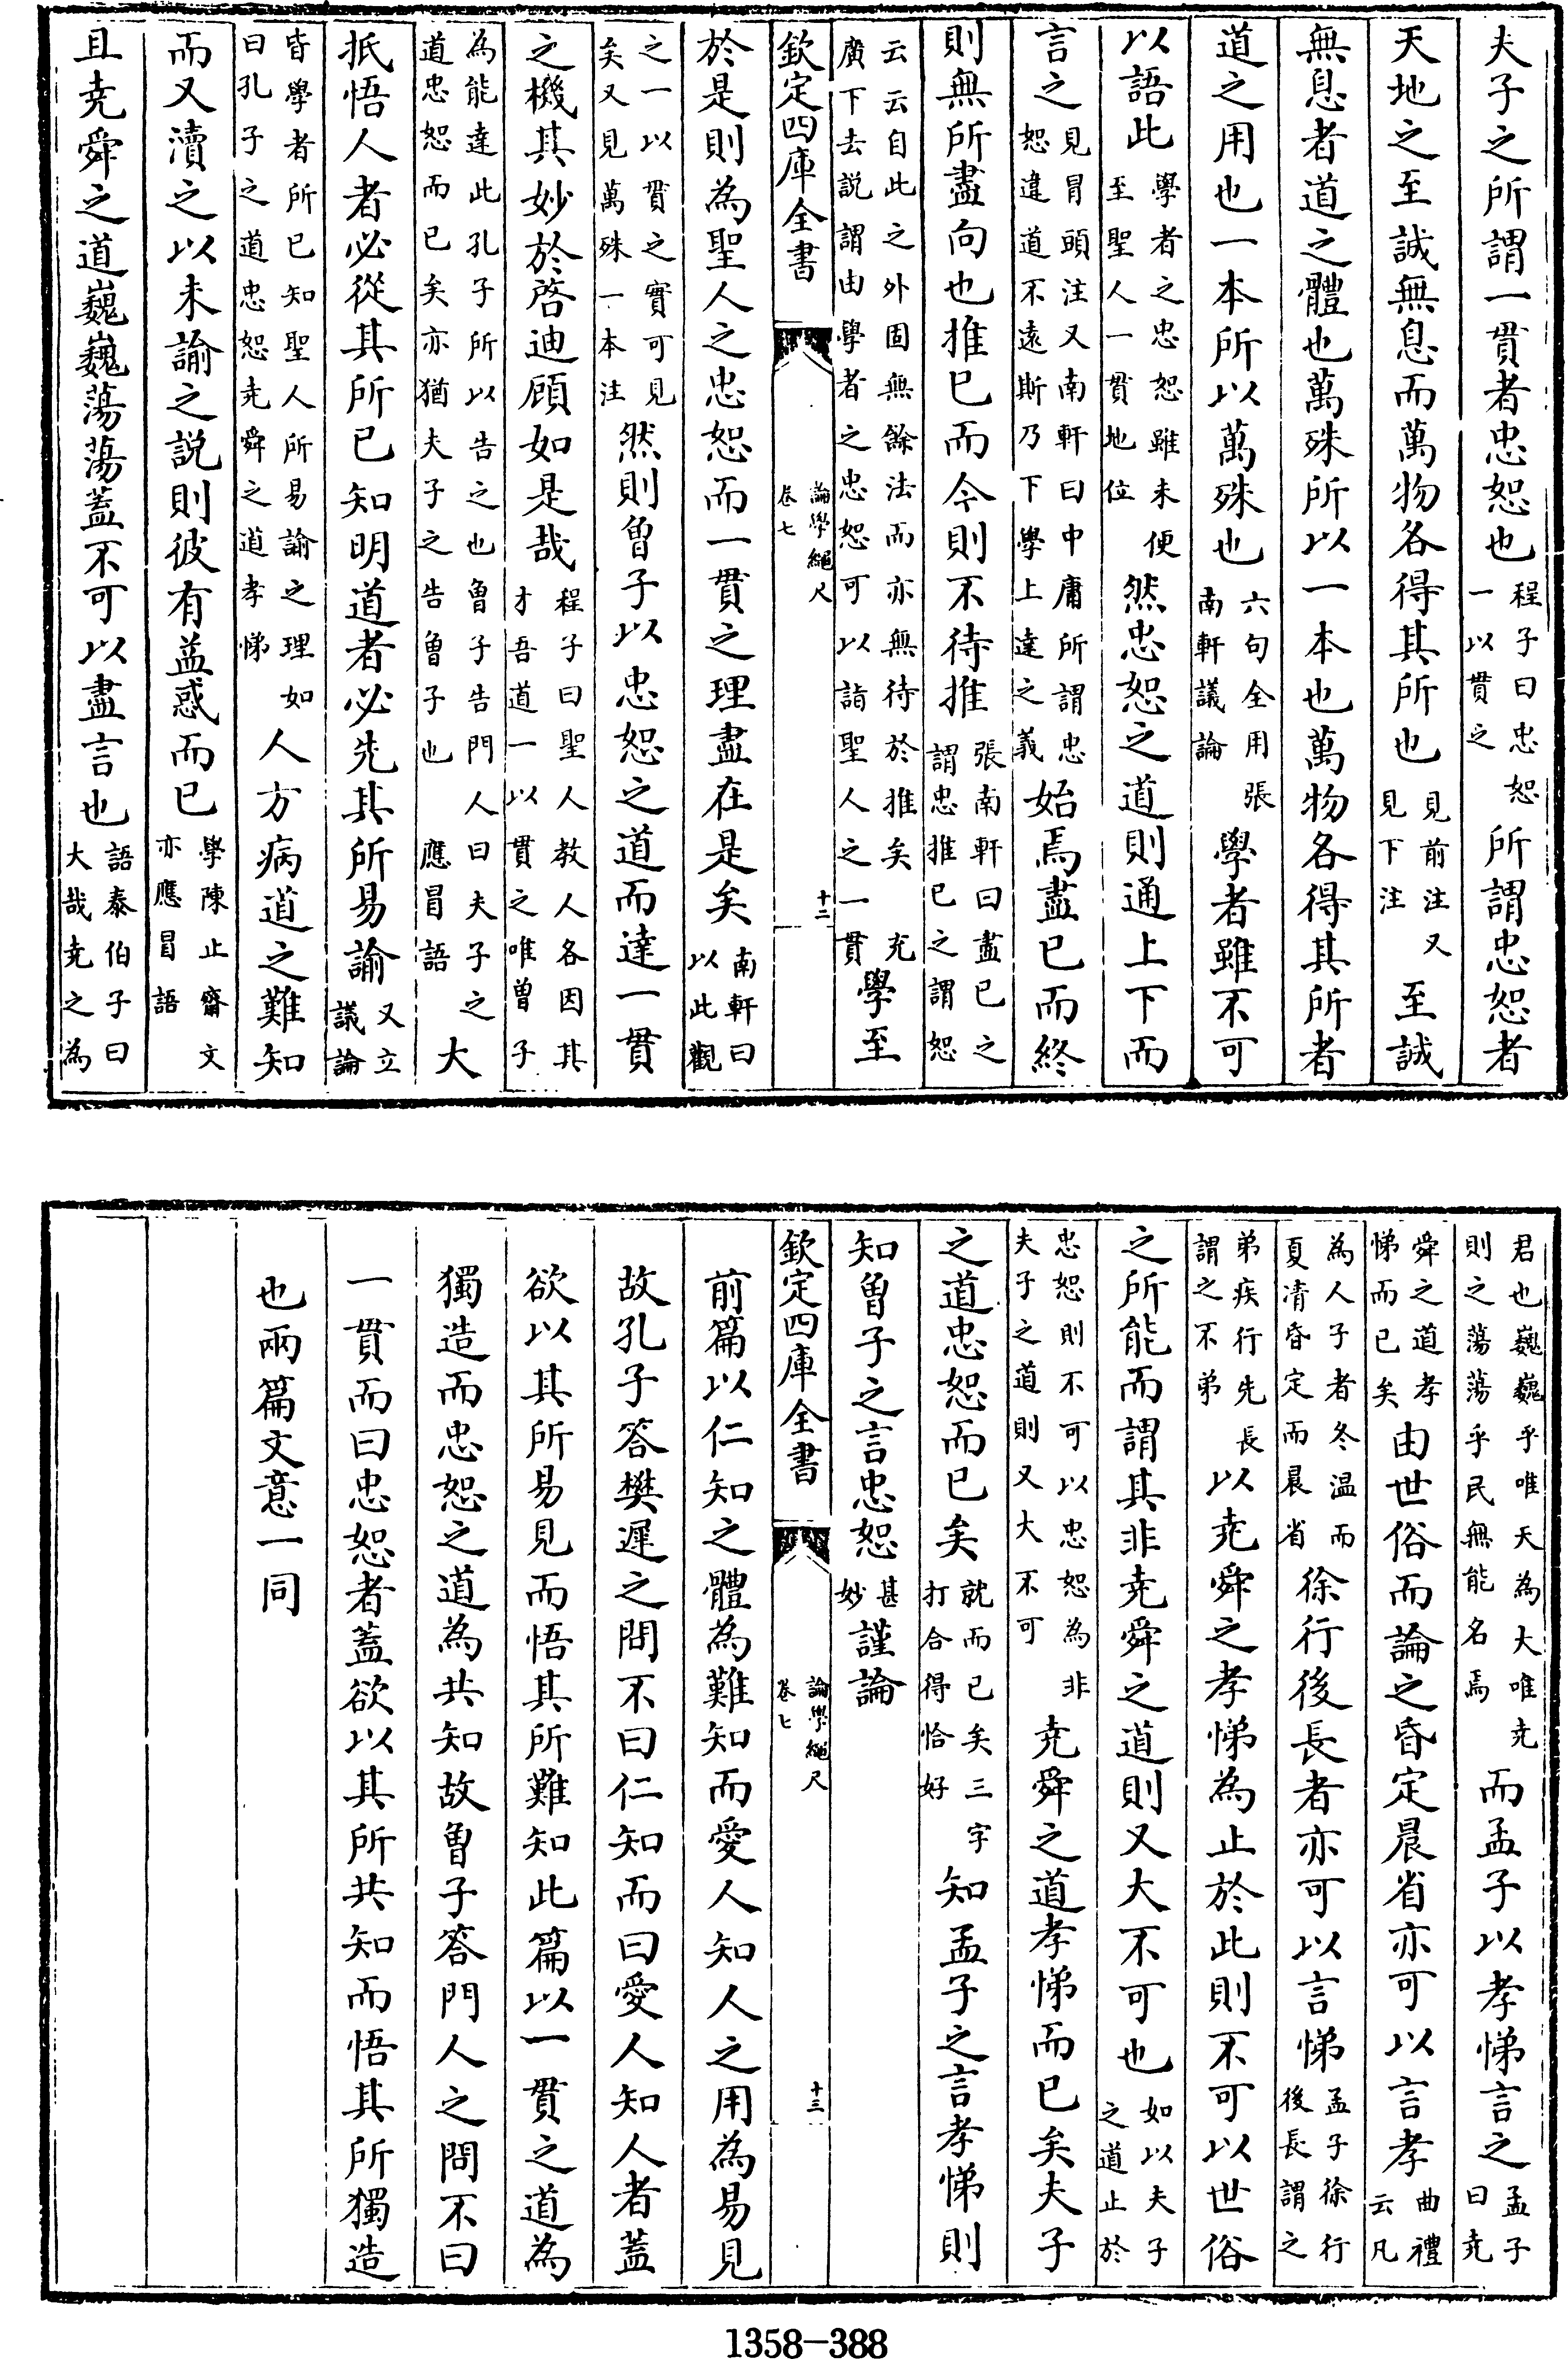 夫子之所謂一貫者忠恕也程子曰忠恕一以貫之所謂忠恕者
天地之至誠無息而萬物各得其所也見前注又見下注至誠
無息者道之體也萬殊所以一本也萬物各得其所者
道之用也一本所以萬殊也六句全用張南軒議論學者雖不可
以語此學者之忠恕雖未便至聖人一貫地位然忠恕之道則通上下而
言之見冒頭注又南軒曰中庸所謂忠恕違道不遠斯乃下學上達之義始焉盡已而終
則無所盡向也推已而今則不待推張南軒曰盡已之謂忠推已之謂恕
云云自此之外固無餘法而亦無待於推矣充廣下去説謂由學者之忠恕可以詣聖人之一貫學至
欽定四庫全書
論學繩尺
卷七
十二
於是則為聖人之忠恕而一貫之理盡在是矣南軒曰以此觀
之一以貫之實可見矣又見萬殊一本注然則曾子以忠恕之道而達一貫
之機其妙於啓迪顧如是哉程子曰聖人教人各因其才吾道一以貫之唯曾子
為能達此孔子所以告之也曾子告門人曰夫子之道忠恕而已矣亦猶夫子之告曾子也應冒語大
抵悟人者必從其所已知明道者必先其所易諭又立議論
皆學者所已知聖人所易諭之理如曰孔子之道忠恕堯舜之道孝悌人方病道之難知
而又瀆之以未諭之説則彼有益惑而已學陳止齋文亦應冒語
且堯舜之道巍巍蕩蕩蓋不可以盡言也語泰伯子曰大哉堯之為
君也巍巍乎唯天為大唯堯則之蕩蕩乎民無能名焉而孟子以孝悌言之孟子曰堯
舜之道孝悌而已矣由世俗而論之昏定晨省亦可以言孝曲禮云凡
為人子者冬温而夏凊昏定而晨省徐行後長者亦可以言悌孟子徐行後長謂之
弟疾行先長謂之不弟以堯舜之孝悌為止於此則不可以世俗
之所能而謂其非堯舜之道則又大不可也如以夫子之道止於
忠恕則不可以忠恕為非夫子之道則又大不可堯舜之道孝悌而已矣夫子
之道忠恕而已矣就而已矣三字打合得恰好知孟子之言孝悌則
知曾子之言忠恕甚妙謹論
欽定四庫全書
論學繩尺
卷七
十三
前篇以仁知之體為難知而愛人知人之用為易見
故孔子答樊遲之問不曰仁知而曰愛人知人者蓋
欲以其所易見而悟其所難知此篇以一貫之道為
獨造而忠恕之道為共知故曾子答門人之問不曰
一貫而曰忠恕者蓋欲以其所共知而悟其所獨造
也兩篇文意一同
1358-388